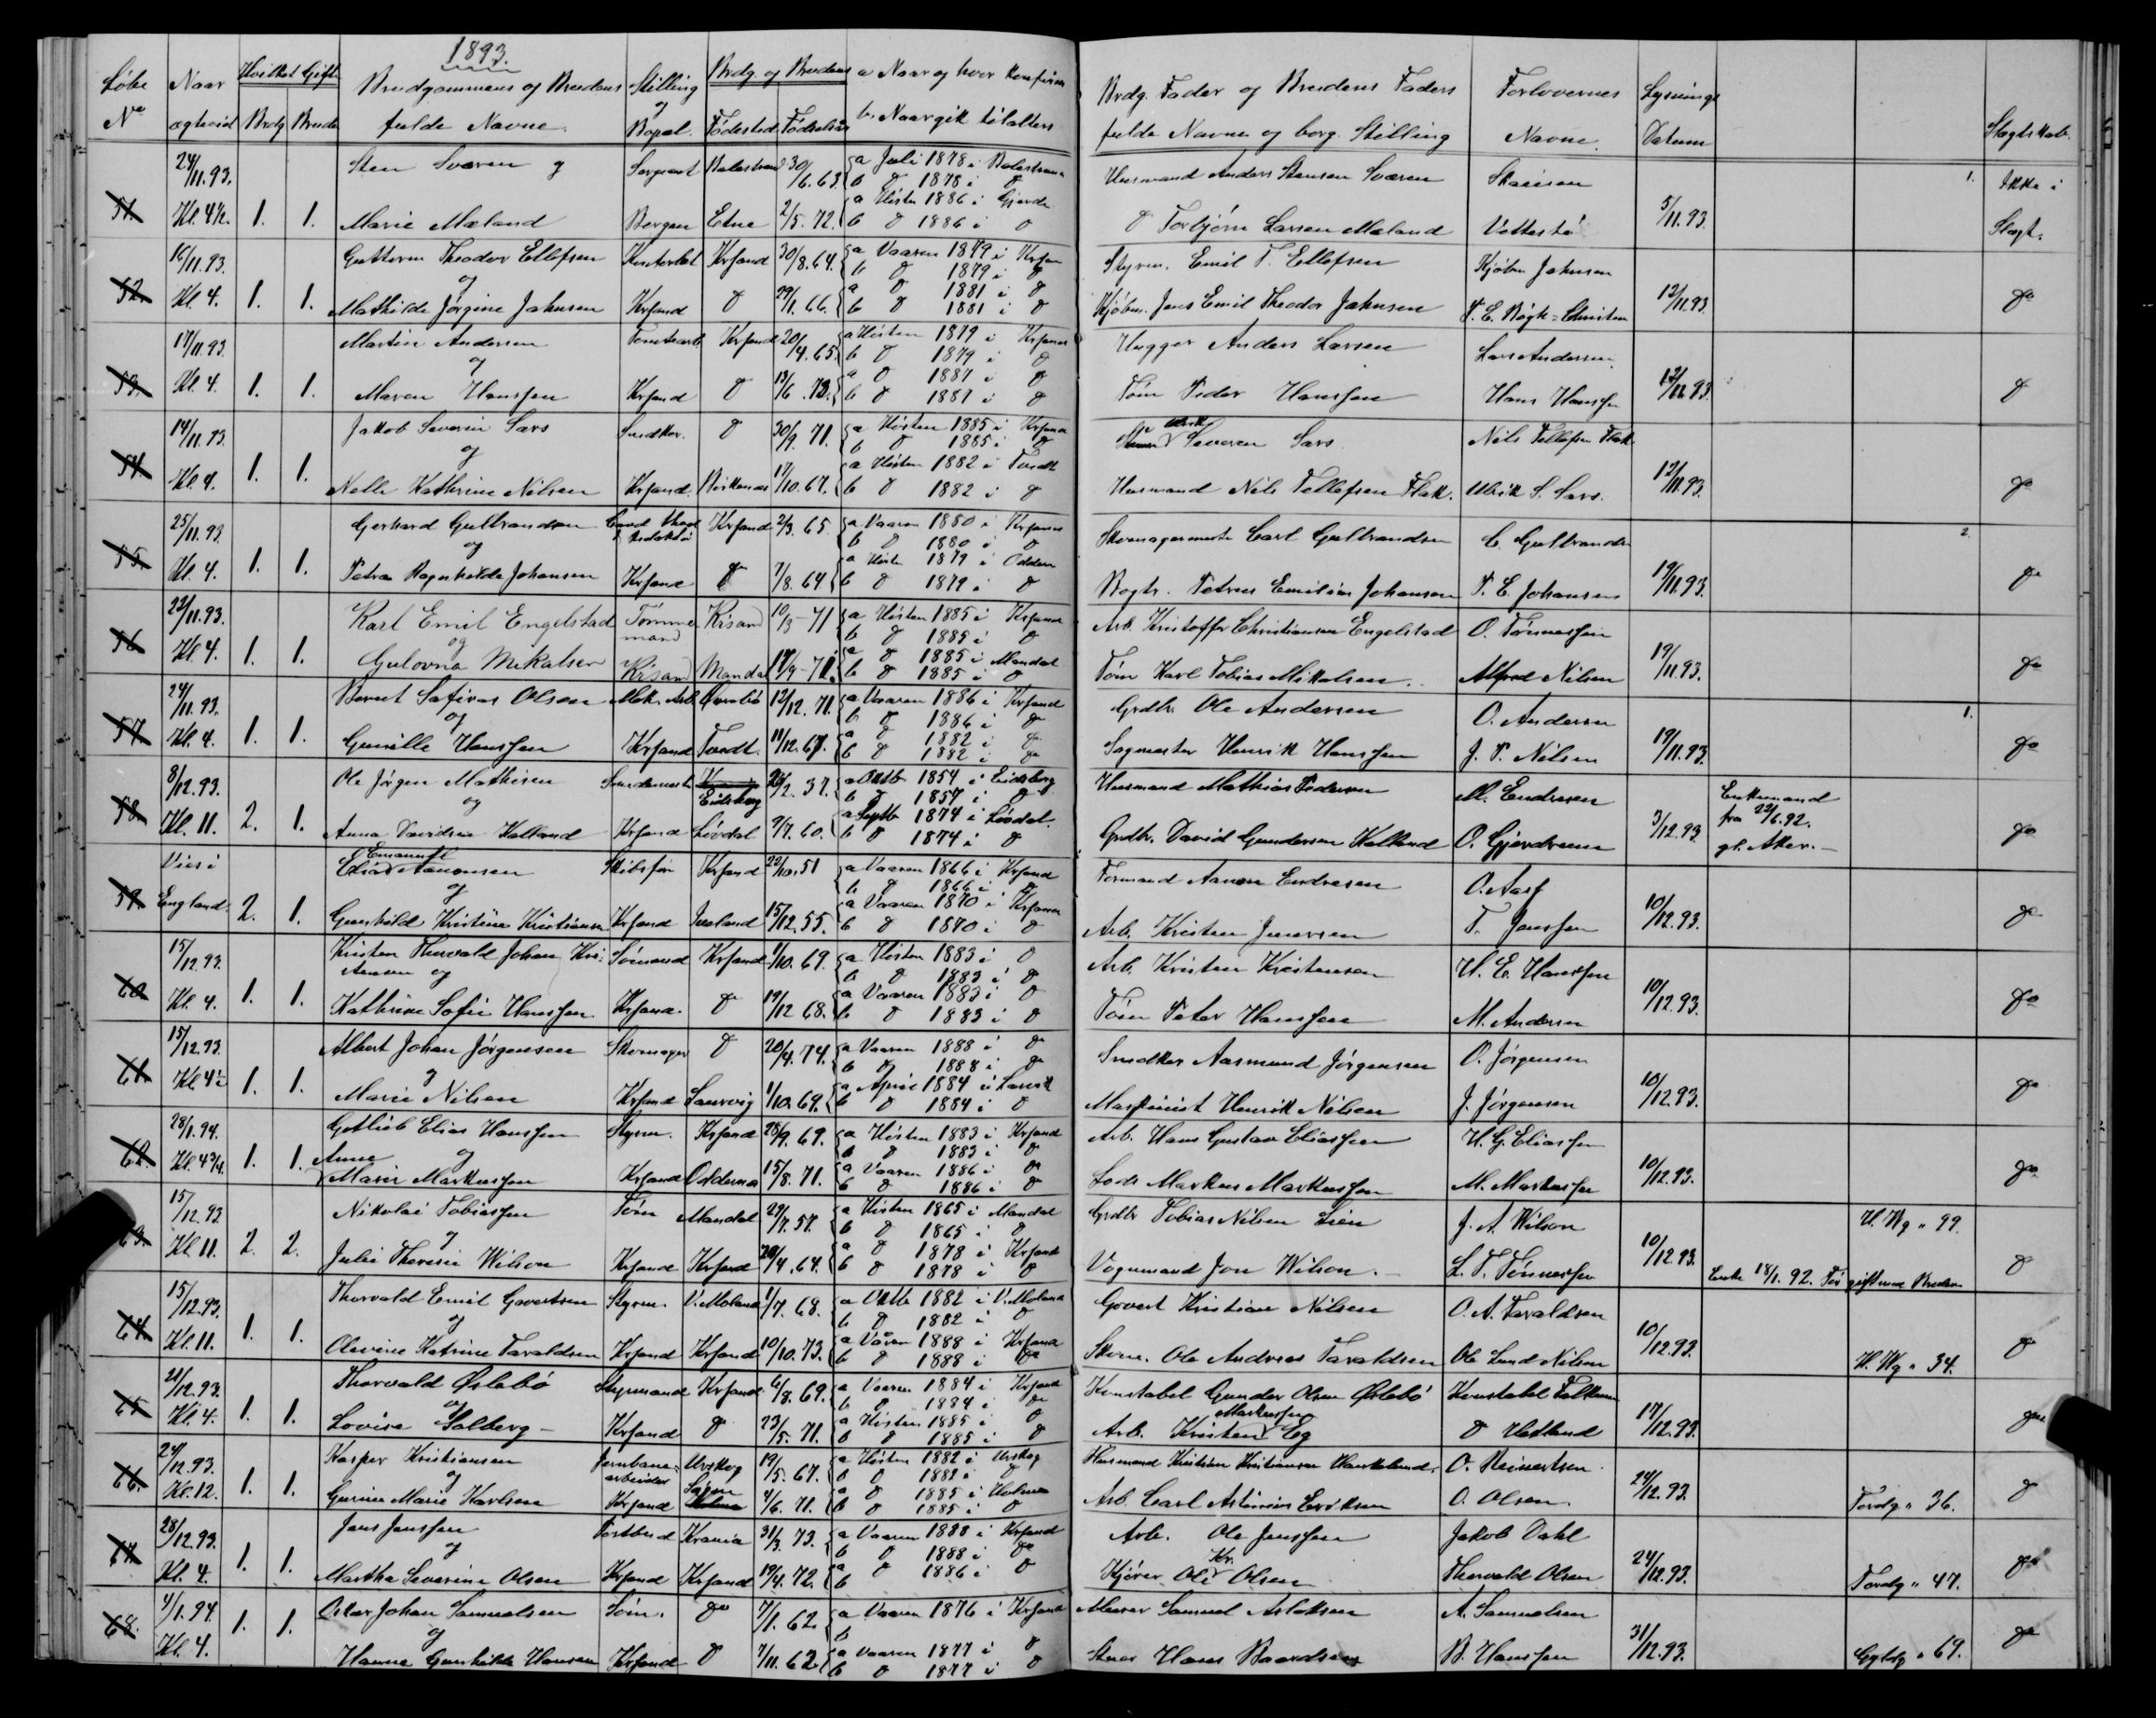 1893.
Løbe No Naar ægtviet Hvilket Gifte Brdg Brude Brudgommens og Brudens fulde Navne. Stilling og Bopæl. Brdg. og Brudens Fødested Fødselsår a. Naar og hvor Konfirm b. Naar gik til alters Brdg. Fader og Brudens Faders fulde Navne og borg. Stilling Forlovernes Navne. Lysnings Datum Slagtskab.
24/11.93. Sten Sværen og Sergeant Balestrand 30/6.63. a Juli 1878 i Balestrand Husmand Anders Stensen Sværen 1. Ikke i
b d 1878 i d
51. Kl. 4½. 1. 1. Marie Mæland Bergen Etne 2/5.72. a Høsten 1886 i d Torbjørn Larsen Mæland 5/11.93. Slagt.
b d 1886 i d
16/11.93. Guttorm Theodor Ellefsen Krsand 30/8.64. a Vaaren 1879 i Styrm. Emil T. Ellefsen Kjøbm Jahnsen
og b d 1879 i d
52. Kl. 4. 1. 1. Mathilde Jørgine Jahnsen Krsand d 29/1.66. a d 1881 i d Kjøbm. Jens Emil Theodor Jahnsen 12/11.93. do
b d 1881 i d
17/11.93. Martin Andersen Krsand 20/4.65. a Høsten 1879 i Krsand Hugger Anders Larsen Lars Andersen
og b d 1879 i d
53. Kl. 4. 1. 1. Maren Hanssen Krsand d 13/6.72. a d 1887 i d Tøm Peder Hanssen Hans Hanssen 12/11.93. d
b d 1887 i d
14/11.93. Jakob Severin Sars Snedker. d 30/9.71. a Høsten 1885 i Krsand Severen Sars Nils Tellefsen Flak
og b d 1885 i d
54. Kl. 4. 1. 1. Nelle Kathrine Nilsen Krsand. Birkenæs 17/10.67. a Høsten 1882 i Tveidt Husmand Nils Tellefsen Flak. Ulrik S. Sars. 12/11.93. do
b d 1882 i d
25/11.93. Gerhard Gulbrandsen Krsand 2/3.65. a Vaaren 1880 i Krsand Skomagermester Carl Gulbrandsen C. Gulbrandsen 2.
og b d 1880 i d
55. Kl. 4. 1. 1. Petra Ragnhilda Johansen Krsand d 7/8.64 a Høsten 1879 i Oddern Bogtr. Petrus Emilius Johansen P. E. Johansen 19/11.93. do
b d 1879 i d
22/11.93. Karl Emil Engelstad Tømmermand Krisand 10/3-71 a Høsten 1885 i Krsand Arb. Kristoffer Christiansen Engelstad O. Tønnessen
og b d 1885 i d
56 Kl. 4. 1. 1. Gulovna Mikalsen Krisand Mandal 17/9-71. a d 1885 i Mandal Tøm Karl Tobias Mikalsen. Alfred Nilsen 19/11.93. do
b d 1885 i d
24/11.93. Bernt Safirus Olsen Mek. Arb. 12/12.71. a Vaaren 1886 i Krsand Grdbr. Ole Andersen O. Andersen 1.
og b d 1886 i do
57. Kl. 4. 1. 1. Gunille Hanssen Krsand Tveidt. 11/12.67. a d 1882 i d Sagmester Henrik Hanssen J. P. Nilsen 19/11.93. do
b d 1882 i do
8/12.93. Ole Jørgen Mathisen Eidsberg 2.37. a Oktb 1854 i Eidsberg Husmand Mathias Pedersen M. Endresen Enkemand
og b d 1857 i d fra 22/6.92.
58. Kl. 11. 2. 1. Anna Davidsen Kalland Krsand Løvdal 7/7.60. a Septb 1874 i Løvdal. Grdbr. David Gundersen Kalland O. Gjerdrum 3/12.93 gl. Aker.- do
b d 1874 i d
Viet i Emanuel Elias Aanonsen Skibsfør Krsand 22/10.51 a Vaaren 1866 i Krsand Formand Aanon Endresen O. Aas
og b d 1866 i d
59. England. 2. 1. Gunhild Kristine Kristiansen Krsand Iveland 15/12.55. a Vaaren 1870 i Krsand Arb. Kristen T. Janssen 10/12.93. do
b d 1870 i d
15/12.93. Kristen Thorvald Johan Kri- Sømand Krsand 1/10.69. a Høsten 1883 i d Arb. Kristen Kristensen H. E. Hanssen
og b d 1883 i d
60. Kl. 4. 1. 1. Kathrine Sofie Hanssen Krsand. d 19/12 68. a Vaaren 1883 i d Tøm Peter Hanssen M. Andersen 10/12.93. do
b d 1883 i d
15/12.93. Albert Johan Jørgensen Skomager d 20/4.74. a Vaaren 1888 i do Snedker Aasmund Jørgensen O. Jørgensen
og b d 1888 i do
61. Kl 4½ 1. 1. Marie Nilsen Krsand Laurvig 1/10.69. a April 1884 i Larvik Maskinist Henrik Nilsen J. Jørgensen 10/12.93. do
b d 1884 i d
28/1.94. Gotlieb Elias Hanssen Styrm. Krsand 28/9.69. a Høsten 1883 i Krsand Arb. Hans Gustav Eliassen H. G. Eliassen
og b d 1883 i d
62. Kl. 4¾. 1. 1. Anne Marie Markussen Krsand Oddernes 15/8.71. a Vaaren 1886 i do Lods Markus Markussen M. Markussen 10/12.93. do
b d 1886 i d
15/12.93 Nikolai Tobiassen Tøm Mandal 29/7.57. a Høsten 1865 i Mandal Grdbr Tobias Nilsen Lien J. A. Wilson H. Wg " 99.
og b d 1865 i d
63. Kl. 11. 2. 2. Julie Theresie Wilson Krsand Krsand 20/4.64. a d 1878 i Krsand Vognmand Jon Wilson. L. T. Tønnessen 10/12.93. Enke 18/1.92. d
b d 1878 i d
15/12.93. Thorvald Emil Govertsen Styrm. V. Moland 1/7.68. a Oktb 1882 i V. Moland Govert Kristian Nilsen O. A. Taraldsen
og b d 1882 i d
64. Kl. 11. 1. 1. Olevine Katrine Taraldsen Krsand Krsand 10/10.73. a Vaaren 1888 i Krsand Skom. Ole Andreas Taraldsen Ole Lund Nilsen 10/12.93. H. Wg " 34. d
b d 1888 i do
21/12.93. Thorvald Øslebø Styrmand Krsand 6/8.69. a Vaaren 1884 i Krsand Konstabel Gunder Olsen Øslebø Konstabel
og b d 1884 i do
65. Kl. 4. 1. 1. Lovise Salberg- Krsand d 23/5.71. a Høsten 1885 i d Arb. Kristen Markussen Eg d Hetland 17/12.93. do
b d 1885 i d
24/12.93. Kasper Kristiansen Jernbane-arbeider Urskog 19/5.67. a Høsten 1882 i Urskog Husmand Kristian Kristiansen O. Reinertsen.
og b d 1882 i d
66. Kl. 12. 1. 1. Gurine Marie Karlsen Krsand 4/6.71. a d 1885 i Holme Arb. Carl Eriksen O. Olsen. 24/12.93. Tordg " 36. d
b d 1885 i d
28/12.93. Jens Jenssen Postbud Krania 31/3.73. a Vaaren 1888 i Krsand Arb. Ole Jenssen Jakob Dahl
og b d 1888 i do
67. Kl. 4. 1. 1. Martha Severine Olsen Krsand Krsand 19/4.72. a d 1886 i d Kjører Ole Kr. Olsen Thorvald Olsen 24/12.93. Tordg " 47. do
b
4/1.94. Oskar Johan Samuelsen Søm. do 7/1.62. a Vaaren 1876 i Krsand Murer Samuel Aslaksen A. Samuelsen
og b
68. Kl. 4. 1. 1. Hanna Gunhilde Hansen Krsand d 7/11.62 a Vaaren 1877 i d Hans Baardsen B. Hanssen 31/12.93. " 69. do
b d 1877 i d